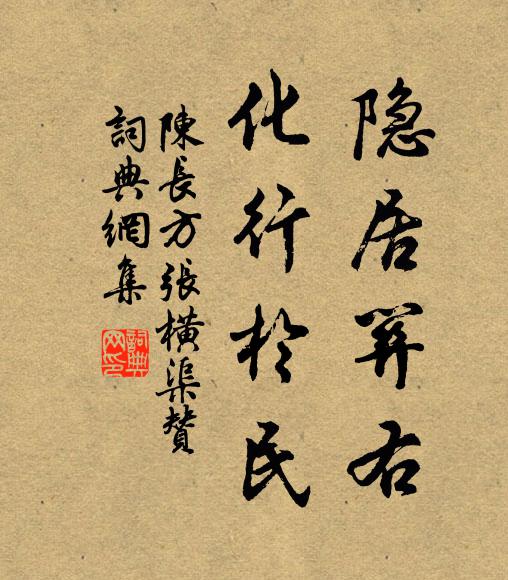 隐居関右
化行於民
陳長方張橫渠贊
詞典網集
詞典网印